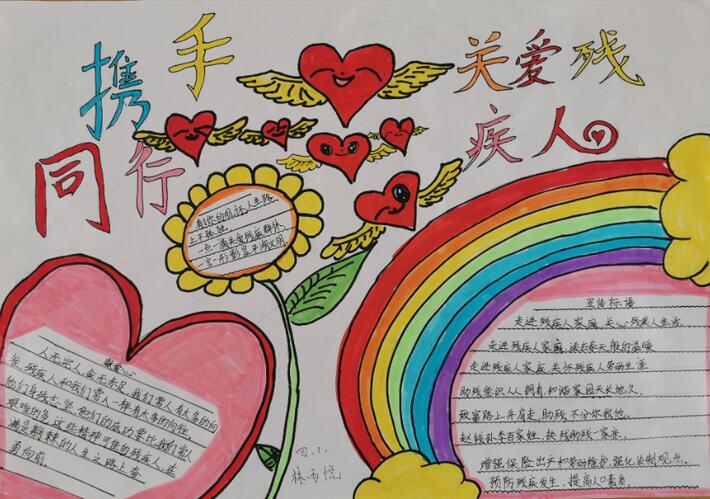 携手
同行
关爱残
疾人
有你的关怀,人生路
上不孤独。
一点一滴关爱残疾群体,
一言一形彰显平湖文明。
献爱心
人无完人,金无赤足,我们常人有太多的向
往,残疾人和我们常人一样有太多的向往。
他们身残志坚,他们的成功要比我们常人
艰难的多,这些精神可佳的残疾人,在
满是荆棘的人生之路上奋
勇向前。
四.3.
林雨悦
宣传标语
走进残疾人家庭,关心残疾人生活.
走进残疾人家庭,送去春天般的温暖
走进残疾人家庭,关怀残疾人劳动生涯
助残意识人人拥有,和谐家园天长地久,
致富路上并肩走,助残不分你我他,
赵钱孙李百家姓,扶残助残一家亲。
增强保险出产和劳动维护,强化法制观点,
预防残疾发生,提高人口素质。